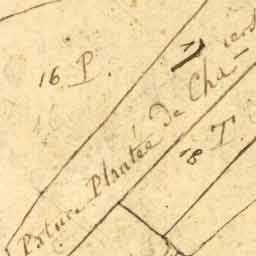 16 P.
Pature Plantée de Cha=
18 T.